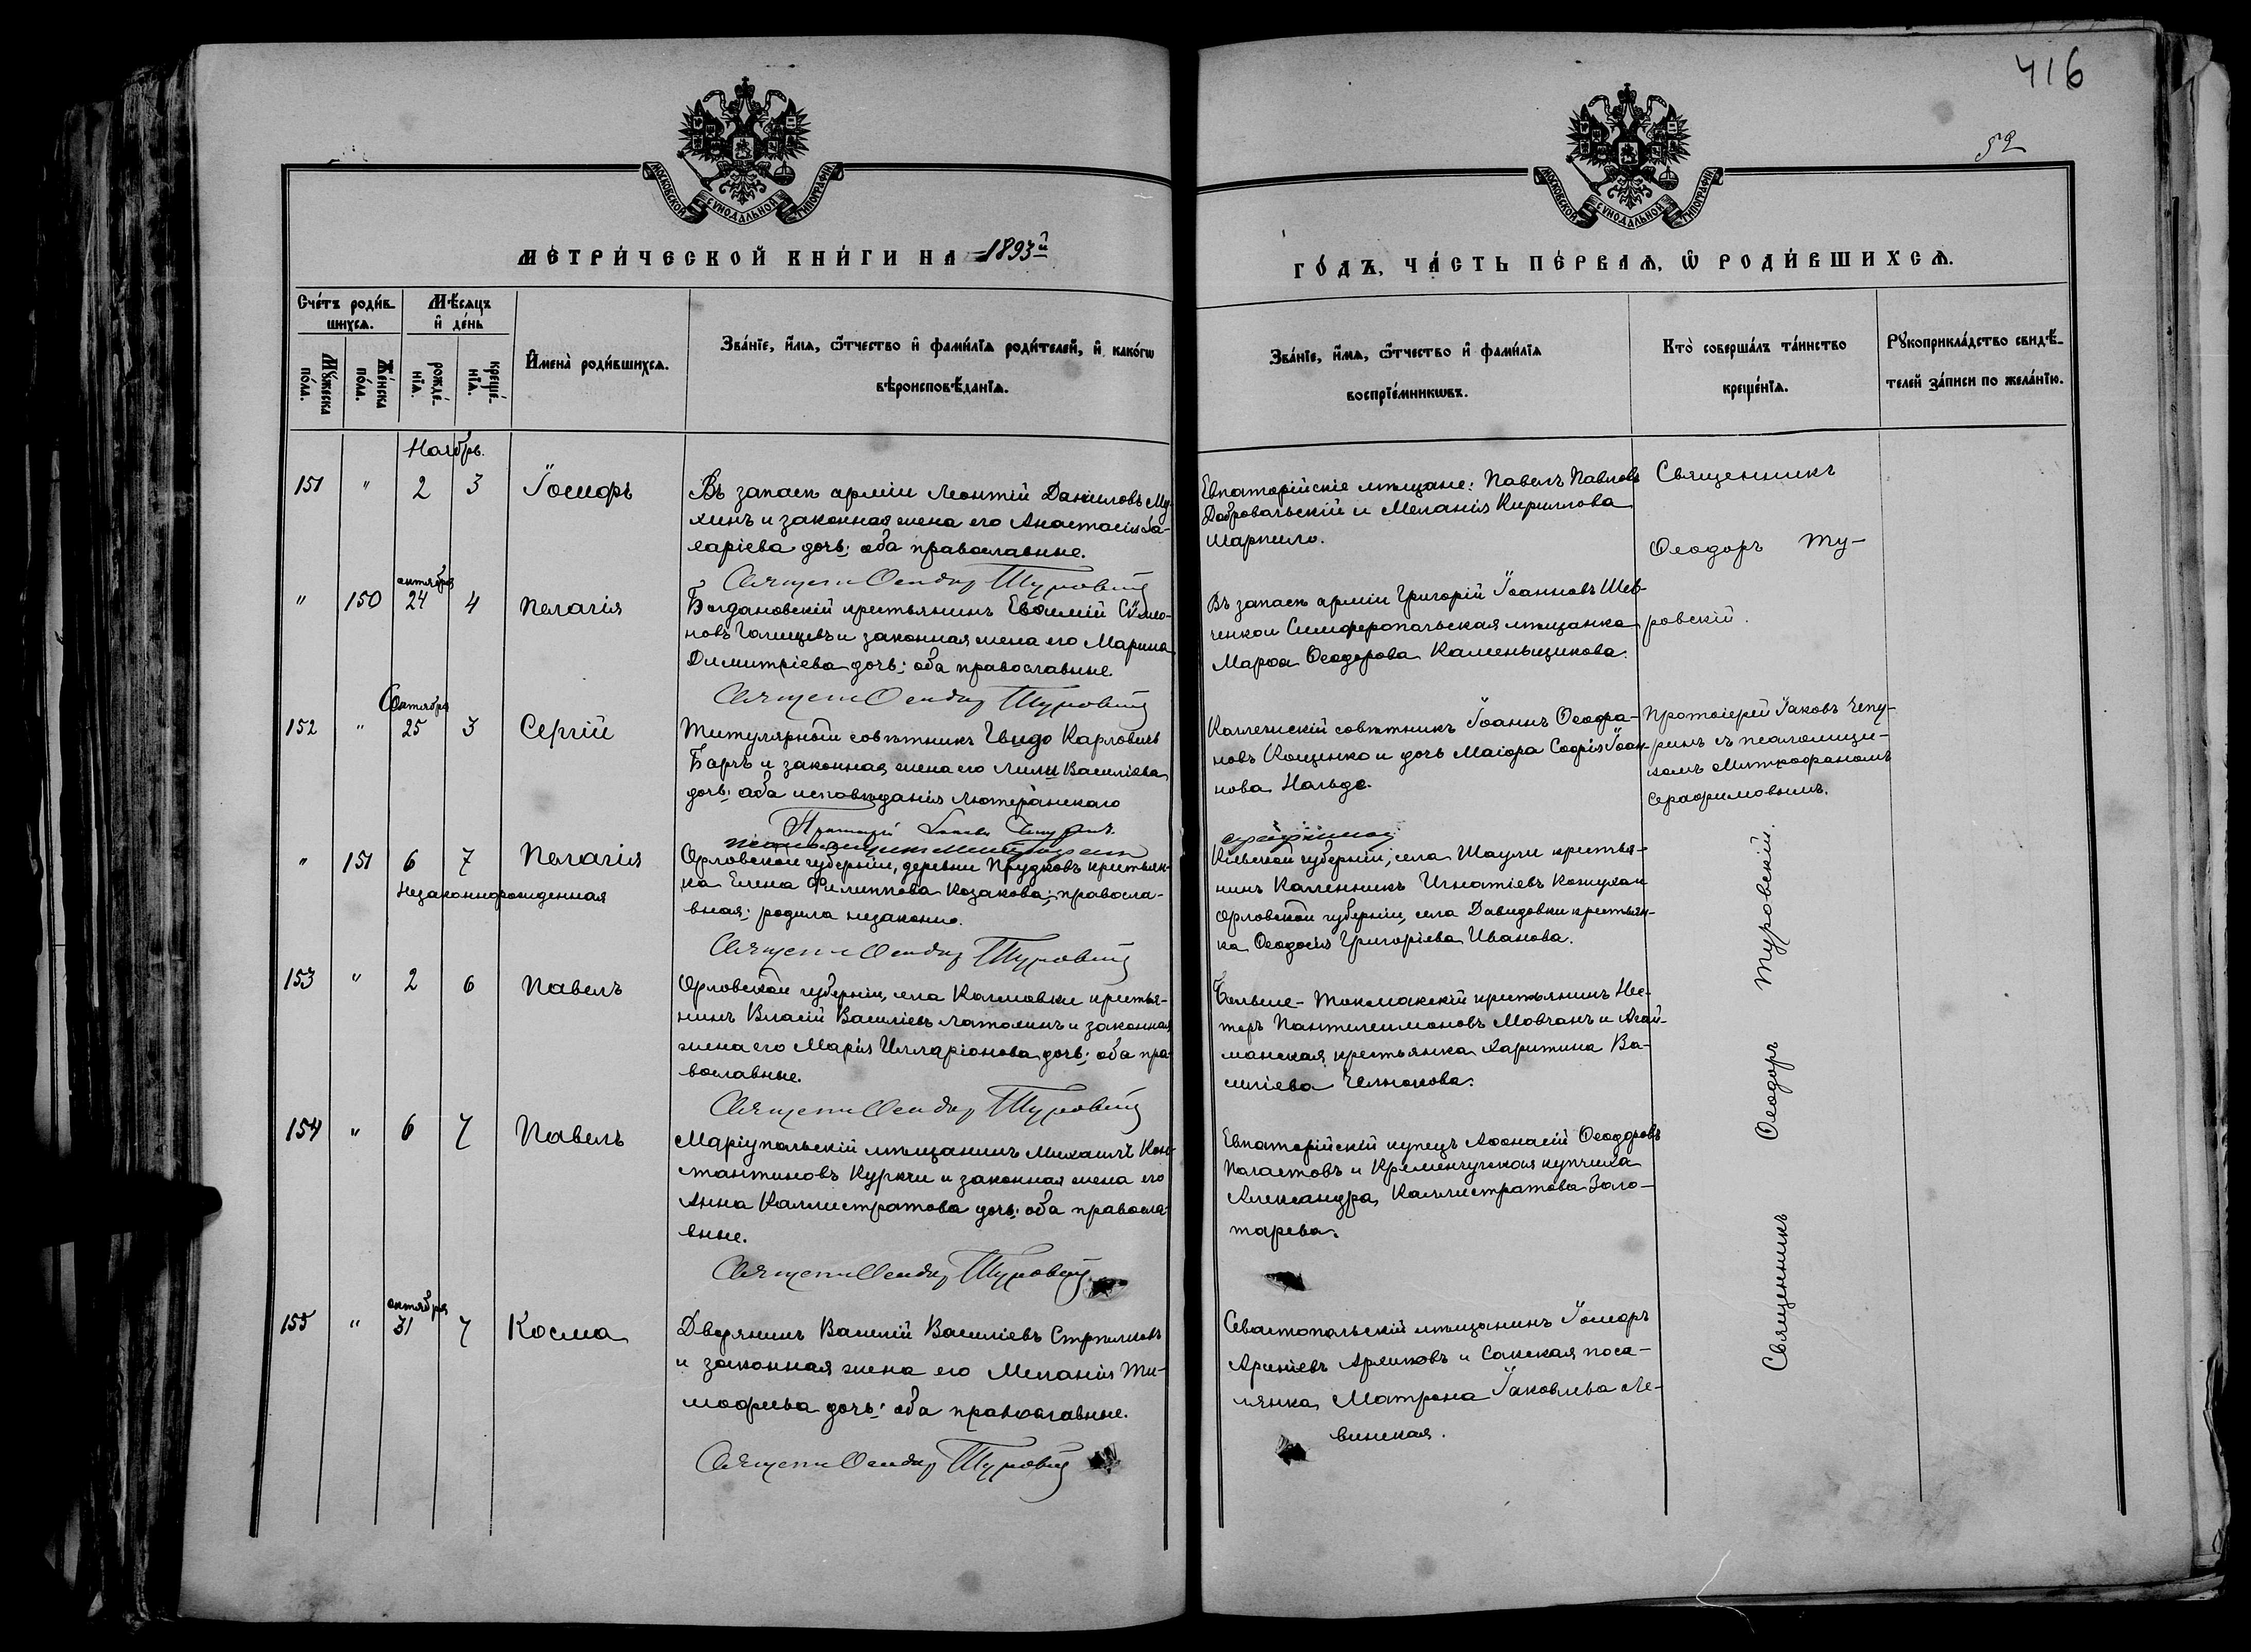 416
52
МОСКОВСКОЙ СѴНОДАЛЬНОЙ ТИПОГРАФІИ
МОСКОВСКОЙ СѴНОДАЛЬНОЙ ТИПОГРАФІИ
МЕТРИ́ЧЕСКОЙ КНИ́ГИ НА 1893й
ГО́ДЪ, ЧА́СТЬ ПЕ́РВАѦ, Ѡ РОДИ́ВШИХСѦ.
Сче́тъ роди́в-
шихсѧ.
Мꙋ́жеска по́ла.
Же́нска по́ла.
Мѣ́сѧцъ и де́нь
рожде́-нїѧ.
креще́-нїѧ.
Имена̀ роди́вшихсѧ.
Зва́нїе, и́мѧ, ѻ́тчество и фами́лїѧ роди́телей, и како́гѡ
вѣроисповѣ́данїѧ.
Зва́нїе, и́мѧ, ѻ́тчество и фами́лїѧ
воспрїе́мникѡвъ.
Кто̀ соверша́лъ та́инство
креще́нїѧ.
Рꙋкоприкла́дство свидѣ́-
телей за́писи по жела́нїю.
Ноябрь.
151 " 2 3 Іосифъ
Въ запасѣ арміи Леонтій Даніиловъ Му-
хинъ и законная жена его Анастасія За-
харіева дочь; оба православные.
Священ Ѳеодор Туровскій
Евпаторійскіе мѣщане: Павелъ Павловъ
Добровольскій и Меланія Кириллова
Шарпило.
Священникъ
Ѳеодоръ Ту-
ровскій.
октября
" 150 24 4 Пелагія
Богдановскій крестьянинъ Евѳимій Сѵмео-
новъ Голищевъ и законная жена его Марина
Димитріева дочь; оба православные.
Священ Ѳеодор Туровскій
Въ запасѣ арміи Григорій Іоанновъ Шев-
ченко и Симферопольская мѣщанка
Марѳа Ѳеодорова Каменьщикова.
Сентября
152 " 25 3 Сергій
Титулярный совѣтникъ Гвидо Карловичъ
Барчъ и законная жена его Лили Василіева
дочь; оба исповѣданія лютеранскаго
Протоіерей Іаковъ Чепуринъ
псаломщикъ Митрофанъ
Серафимов
Коллежскій совѣтникъ Іоаннъ Ѳеофа-
новъ Кощенко и дочь Маіора Софія Іоан-
нова Нольде.
Протоіерей Іаковъ Чепу-
ринъ съ псаломщи-
комъ Митрофаномъ
Серафимовымъ.
" 151 6 7 Пелагія
Незаконнорожденная
Орловской губерніи, деревни Прудковъ крестьян-
ка Елена Филиппова Козакова; правосла-
вная; родила незаконно.
Священ Ѳеодор Туровскій
Кіевской губерніи, села Шаули крестья-
нинъ Каленникъ Игнатіевъ Кожухъ и
Орловской губерніи, села Давидовки крестьян-
ка Ѳеодосія Григоріева Иванова.
153 " 2 6 Павелъ
Орловской губерніи, села Козловки крестья-
нинъ Власій Василіевъ Латохинъ и законная
жена его Марія Илларіонова дочь; оба пра-
вославные.
Священ Ѳеодор Туровскій
Больше-Токмакскій крестьянинъ Нес-
торъ Пантелеимоновъ Мовчанъ и Агай-
манская крестьянка Харитина Ва-
силіева Челнокова.
154 " 6 7 Павелъ
Маріупольскій мѣщанинъ Михаилъ Кон-
стантиновъ Куркчи и законная жена его
Анна Каллистратова дочь; оба правосла-
вные.
Священ Ѳеодор Туровскій
Евпаторійскій купецъ Аѳонасій Ѳеодоровъ
Поластовъ и Кременчугская купчиха
Александра Каллистратова Золо-
тарева.
октября
155 " 31 7 Косма
Дворянинъ Василій Василіевъ Стрѣлковъ
и законная жена его Меланія Ти-
моѳеева дочь; оба православные.
Священ Ѳеодор Туровскій
Севастопольскій мѣщанинъ Іосифъ
Арсеніевъ Архиповъ и Сакская посе-
лянка Матрона Іаковлева Ле-
винская.
Священникъ Ѳеодоръ Туровскій.